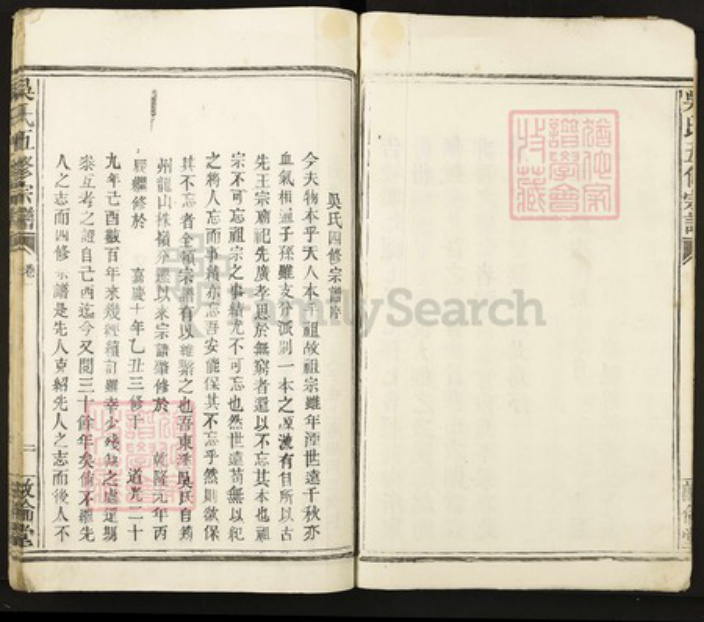 吳氏四修宗譜序
今夫物本乎天人本乎祖故祖宗雖年湮世遠千秋亦
血氣相通子孫雖支分派別一本之源流有自所以古
先王宗廟祀先廣孝思於無窮者還以不忘其本也祖
宗不可忘祖宗之事蹟尤不可忘也然世遠苟無以紀
之將人忘而事蹟亦忘吾安能保其不忘乎然則欲保
其不忘者全領宗譜有以維繫之也吾東 吳氏自
州龍山株嶺 以來宗譜肇修於 乾隆元年丙
辰繼修於 嘉慶十年乙丑三修于 道光二十
九年己酉數百年來幾經續訂雖幸少殘缺之處還期
叅互考之證自己酉迄今又閱三十餘年矣倘不繼先
人之志而四修宗譜是先人克紹先人之志而後人不
吳氏五修宗譜
卷
二
敘倫堂
吳氏五修宗譜
敘倫堂
譜學會
收藏
譜學會
收藏
FamilySearch